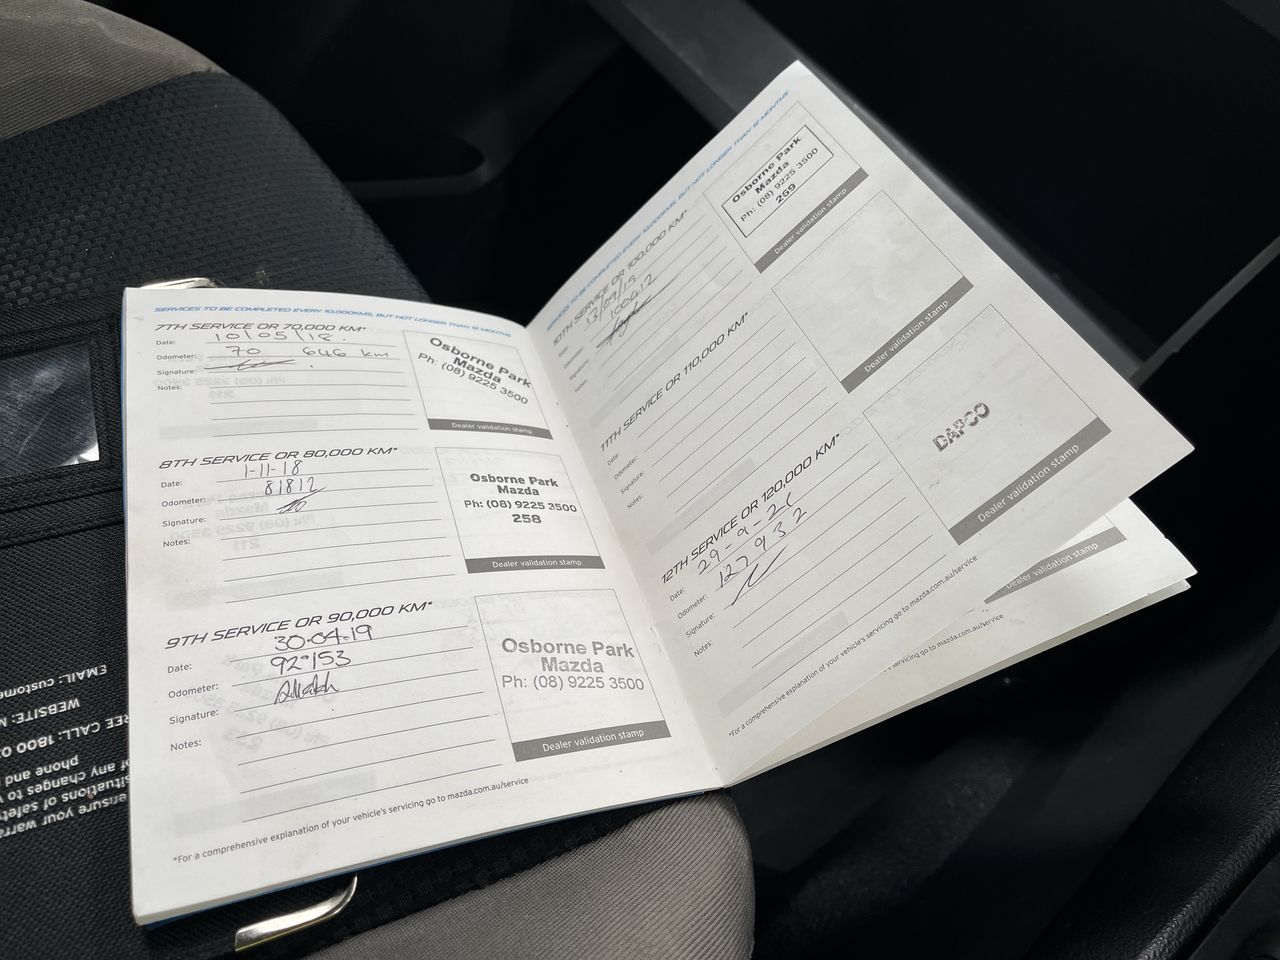 SERVICES TO BE COMPLETED EVERY 10,000KMS, BUT NOT LONGER THAN 12 MONTHS
7TH SERVICE OR 70,000 KM*
Date: 10/05/18.
Odometer: 70 646 km
Signature:
Notes:
Osborne Park
Mazda
Ph: (08) 9225 3500
Dealer validation stamp
8TH SERVICE OR 80,000 KM*
Date: 1-11-18
Odometer: 81812
Signature:
Notes:
Osborne Park
Mazda
Ph: (08) 9225 3500
258
Dealer validation stamp
9TH SERVICE OR 90,000 KM*
Date: 30.04.19
Odometer: 92153
Signature:
Notes:
Osborne Park
Mazda
Ph: (08) 9225 3500
Dealer validation stamp
*For a comprehensive explanation of your vehicle's servicing go to mazda.com.au/service
SERVICES TO BE COMPLETED EVERY 10,000KMS, BUT NOT LONGER THAN 12 MONTHS
10TH SERVICE OR 100,000 KM*
Date: 13/09/19
Odometer: 100412
Signature:
Notes:
Osborne Park
Mazda
Ph: (08) 9225 3500
269
Dealer validation stamp
11TH SERVICE OR 110,000 KM*
Date:
Odometer:
Signature:
Notes:
Dealer validation stamp
12TH SERVICE OR 120,000 KM*
Date: 29-9-21
Odometer: 127932
Signature:
Notes:
DAPCO
Dealer validation stamp
*For a comprehensive explanation of your vehicle's servicing go to mazda.com.au/service
Dealer validation stamp
servicing go to mazda.com.au/service
EMAIL: custome
WEBSITE:
FREE CALL: 1800 0
phone
of any changes to
situations of safet
ensure your warra